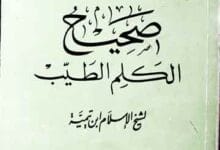 صحيح
الكلم الطيّب
لشيخ الإسلام ابن تيمية